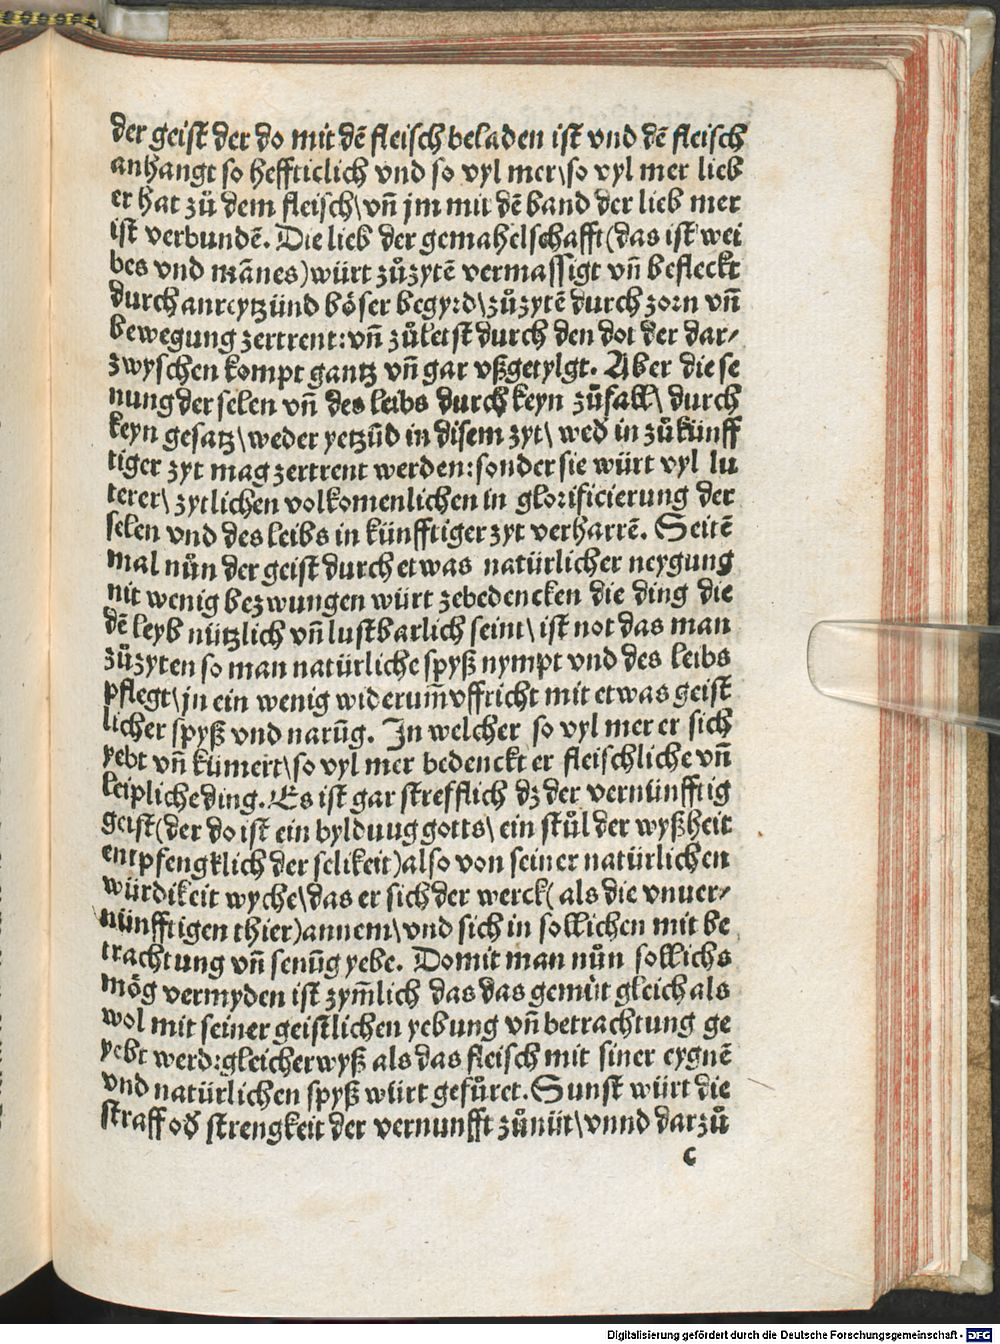 der geist der do mit dē fleisch beladen ist vnd dē fleisch
anhangt so heffticlich vnd so vyl mer\so vyl mer lieb
er hat zů dem fleisch\vn̄ jm mit dē band der lieb mer
ist verbundē. Die lieb der gemahelschafft(das ist wei
bes vnd mānes)würt zůzytē vermassigt vn̄ befleckt
durch anreytzünd böser begyrd\zůzytē durch zorn vn̄
bewegung zertrent:vn̄ zůletst durch den dot der dar-
zwyschen kompt gantz vn̄ gar vßgetylgt. Aber die se
nung der selen vn̄ des leibs durch keyn zůfall\ durch
keyn gesatz\weder yetzūd in disem zyt\ wed̄ in zůkünff
tiger zyt mag zertrent werden:sonder sie würt vyl lu
terer\ zytlichen volkomenlichen in glorificierung der
selen vnd des leibs in künfftiger zyt verharrē. Seitē
mal nůn der geist durch etwas natürlicher neygung
nit wenig bezwungen würt zebedencken die ding die
dē leyb nützlich vn̄ lustbarlich seint\ ist not das man
zůzyten so man natürliche spyß nympt vnd des leibs
pflegt\jn ein wenig widerum̄ vffricht mit etwas geist
licher spyß vnd narūg. In welcher so vyl mer er sich
yebt vn̄ kümert\so vyl mer bedenckt er fleischliche vn̄
leipliche ding. Es ist gar strefflich dz der vernünfftig
geist(der do ist ein byldung gotts\ ein stůl der wyßheit
entpfengklich der selikeit)also von seiner natürlichen
würdikeit wyche\das er sich der werck( als die vnuer-
nünfftigen thier)annem\vnd sich in sollichen mit be
trachtung vn̄ senūg yebe. Domit man nůn sollichs
mög vermyden ist zym̄lich das das gemüt gleich als
wol mit seiner geistlichen yebung vn̄ betrachtung ge
yebt werd:gleicher wyß als das fleisch mit siner eygnē
vnd natürlichen spyß würt gefůret. Sunst würt die
straff od̄ strengkeit der vernunfft zůnüt\vnnd darzů
c
Digitalisierung gefördert durch die Deutsche Forschungsgemeinschaft - DFG